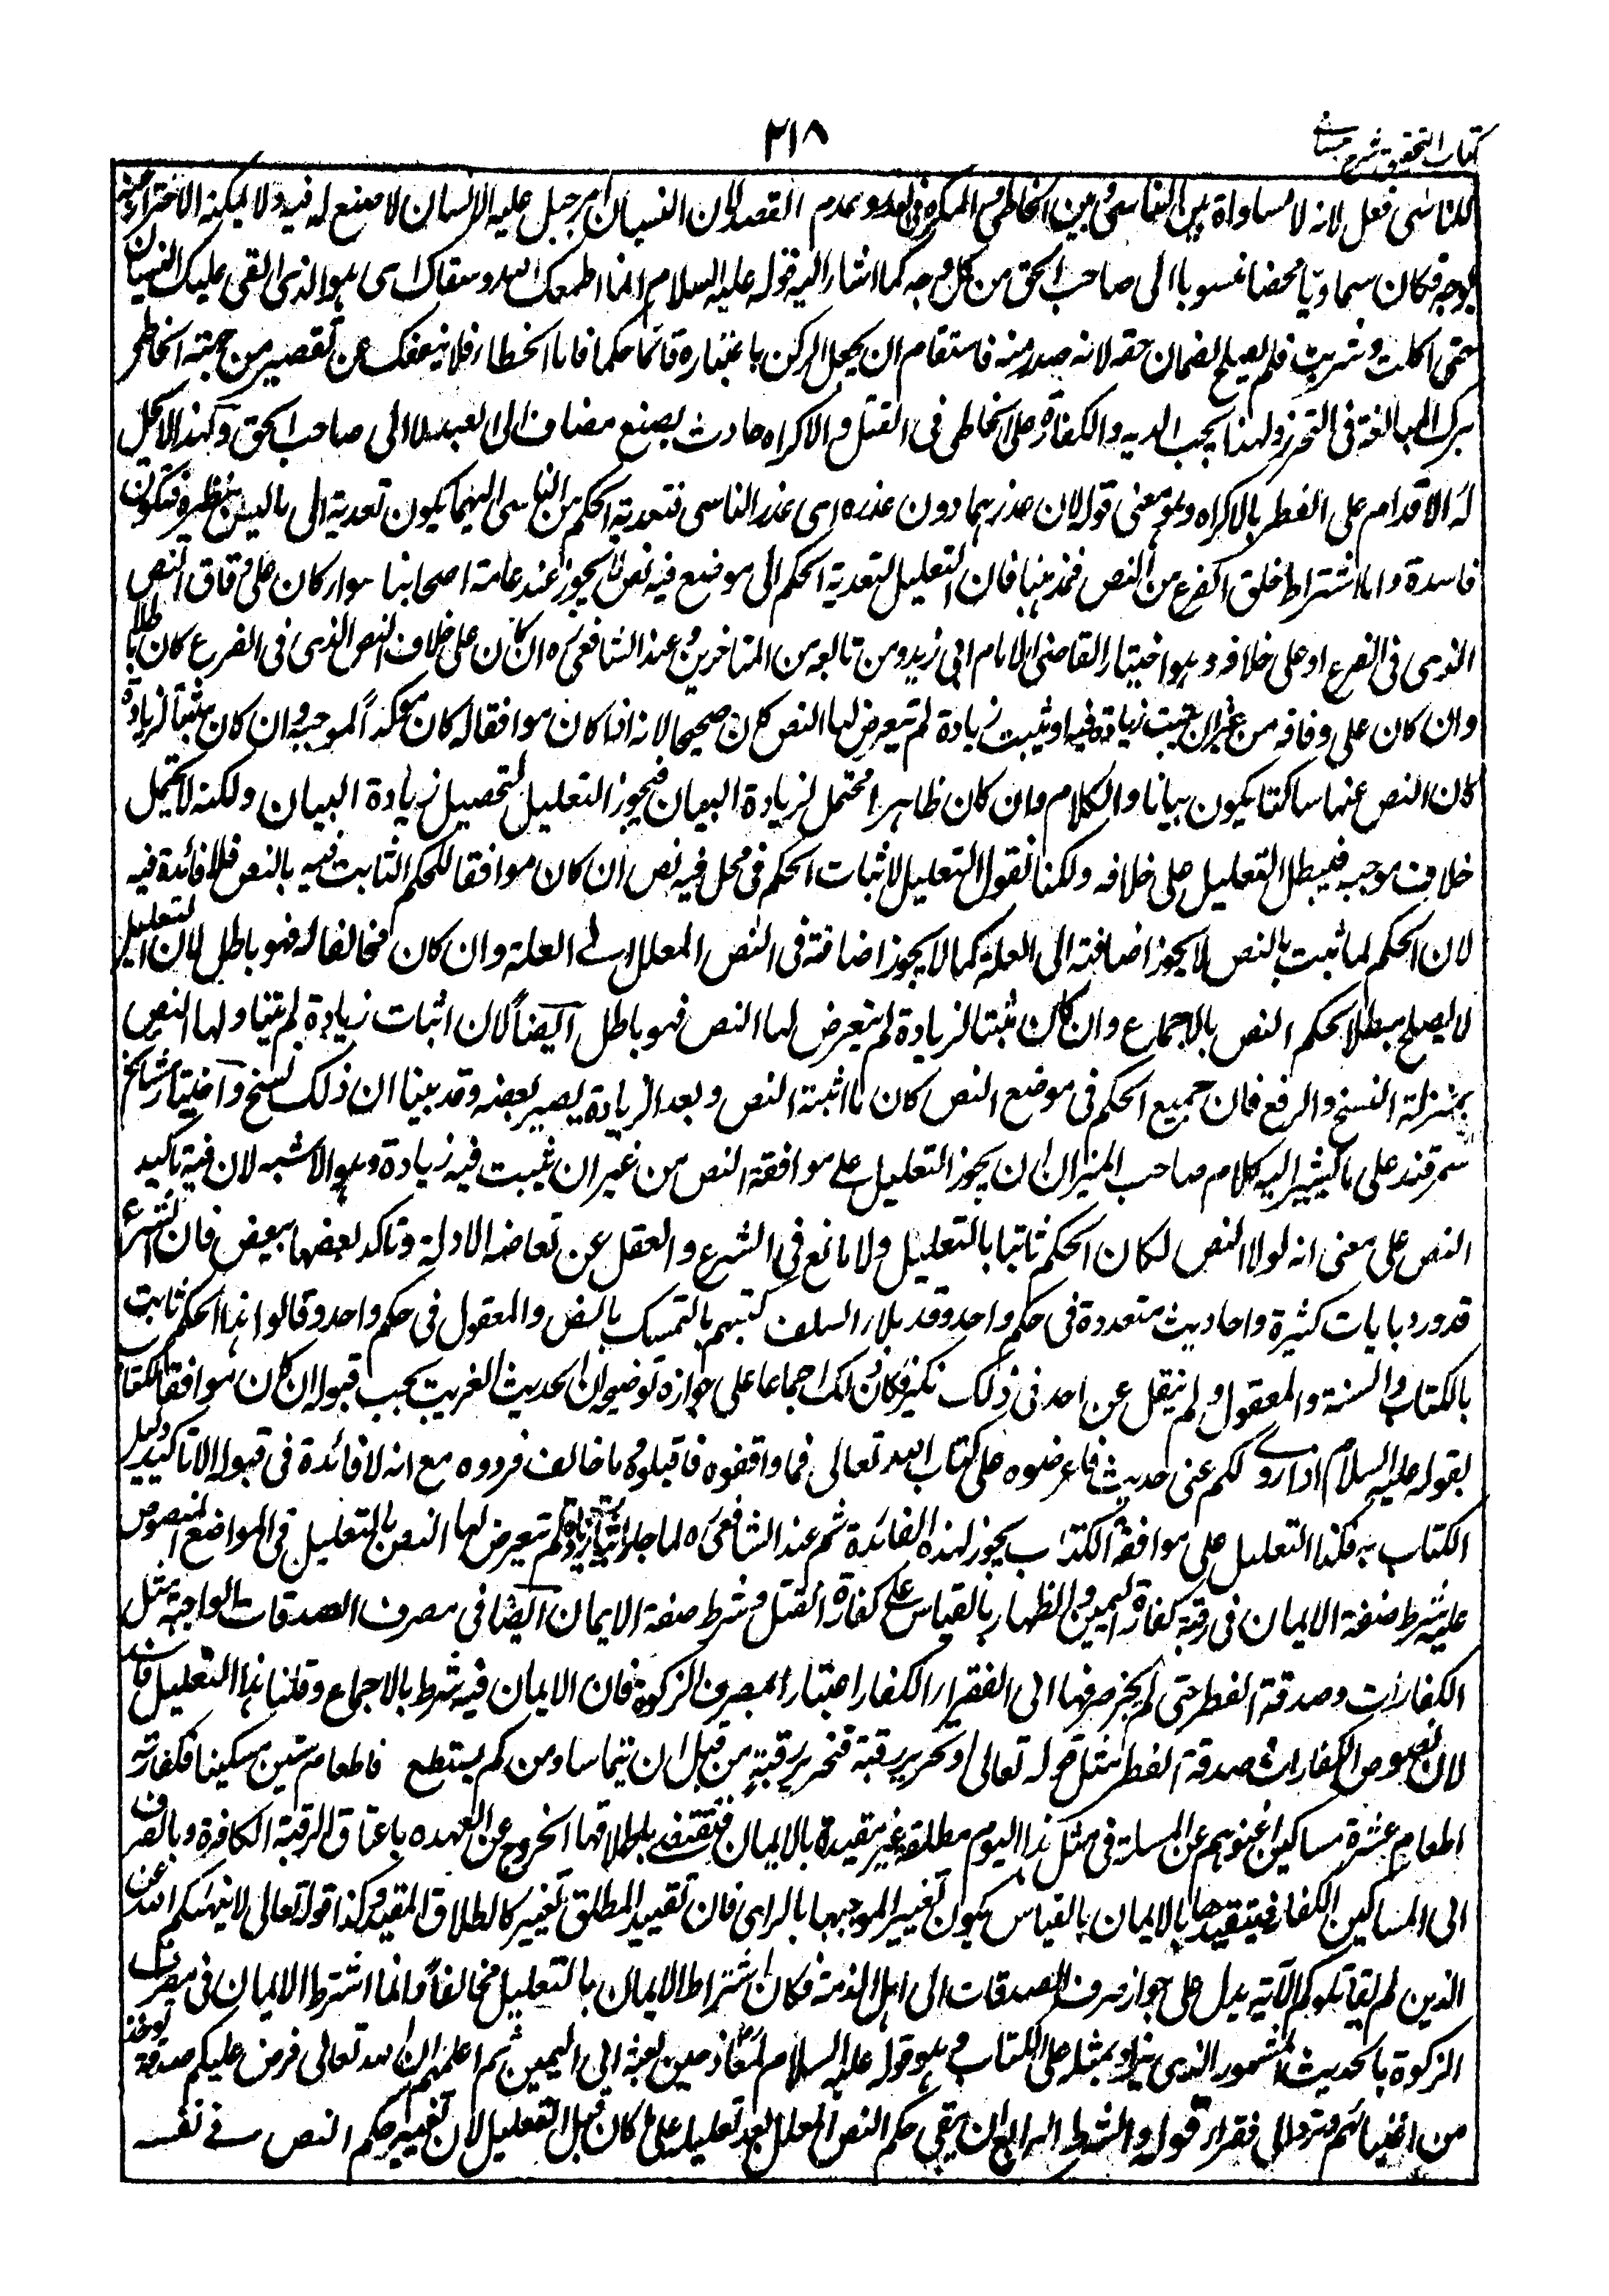 ٢١٨
كتاب التحقيق شرح حسامي
للناسي فعل لانه لا مساواة بين الناسي وبين الخاطي والمكره في العذر وعدم القصد لان النسيان امر جبل عليه الانسان لا صنع له فيه ولا يمكنه الاحتراز عنه
بوجه فكان سماويا محضا منسوبا الى صاحب الحق من كل وجه كما اشار اليه قوله عليه السلام انما اطعمك الله وسقاك اى هو الذى القى عليك النسيان
حتى اكلت وشربت فلم يصلح لضمان حقه لانه صدر منه فاستقام ان يجعل الركن باعتباره قائما حكما فاما الخطاء فلا ينفك عن تقصير من جهة الخاطى
بترك المبالغة فى التحرز ولهذا يجب الدية والكفارة على الخاطى فى القتل والاكراه حادث بصنع مضاف الى العبد لا الى صاحب الحق ولهذا لا يحل
له الاقدام على الفطر بالاكراه وهو معنى قوله لان عذرهما دون عذره اى عذر الناسى فتعدية الحكم من الناسى اليهما يكون تعدية الى ما ليس بنظيره فتكون
فاسدة واما اشتراط خلو الفرع من النص فمذهبنا فان التعليل لتعدية الحكم الى موضع فيه نص لا يجوز عند عامة اصحابنا سواء كان على وفاق النص
الذى فى الفرع او على خلافه وهو اختيار القاضى الامام ابى زيد ومن تابعه من المتاخرين وعند الشافعى ره ان كان على خلاف النص الذى فى الفرع كان باطلا
وان كان على وفاقه من غير ان يثبت زيادة فيه او يثبت زيادة لم يتعرض لها النص كان صحيحا لانه اذا كان موافقا له كان مؤكداً لموجبه وان كان مثبتا لزيادة
كان النص عنها ساكتا يكون بيانا والكلام وان كان ظاهرا محتمل لزيادة البيان فيجوز التعليل لتحصيل زيادة البيان ولكنه لا يحتمل
خلاف موجبه فيبطل التعليل على خلافه ولكنا نقول التعليل لاثبات الحكم فى محل فيه نص ان كان موافقا للحكم الثابت فيه بالنص فلا فائدة فيه
لان الحكم لما ثبت بالنص لا يجوز اضافته الى العلة كما لا يجوز اضافته فى النص المعلل الى العلة وان كان مخالفا له فهو باطل لان التعليل
لا يصلح مبطلا لحكم النص بالاجماع وان كان مثبتا لزيادة لم يتعرض لها النص فهو باطل ايضاً لان اثبات زيادة لم يتناولها النص
بمنزلة النسخ والرفع فان جميع الحكم فى موضع النص كان ما اثبته النص وبعد الزيادة يصير بعضه وقد بينا ان ذلك نسخ واختيار مشايخ
سمرقند على ما يشير اليه كلام صاحب الميزان ان يجوز التعليل على موافقة النص من غير ان يثبت فيه زيادة وهو الاشبه لان فيه تاكيد
النص على معنى انه لولا النص لكان الحكم ثابتا بالتعليل ولا مانع فى الشرع والعقل عن تعاضد الادلة وتاكد بعضها ببعض فان الشرع
قد ورد بايات كثيرة واحاديث متعددة فى حكم واحد وقد ملأ السلف كتبهم بالتمسك بالنص والمعقول فى حكم واحد وقالوا هذا الحكم ثابت
بالكتاب والسنة والمعقول ولم ينقل عن احد فى ذلك نكير فكان ذلك اجماعا على جوازه توضيحه ان الحديث الغريب يجب قبوله ان كان موافقا للكتاب
بقوله عليه السلام اذا روى لكم عنى حديث فاعرضوه على كتاب الله تعالى فما وافقه فاقبلوه وما خالف فردوه مع انه لا فائدة فى قبوله الا تاكيد دليل
الكتاب به فكذا التعليل على موافقة الكتاب يجوز لهذه الفائدة ثم عند الشافعى ره لما جاز اثبات زيادة لم يتعرض لها النص بالتعليل فى المواضع المنصوص
عليه شرط صفة الايمان فى رقبة كفارة اليمين والظهار بالقياس على كفارة القتل وشرط صفة الايمان ايضا فى مصرف الصدقات الواجبة مثل
الكفارات وصدقة الفطر حتى لم يجز صرفها الى الفقراء الكفار اعتبارا بمصرف الزكوة فان الايمان فيه شرط بالاجماع وقلنا هذا التعليل فاسد
لان نصوص الكفارات وصدقة الفطر مثل قوله تعالى او تحرير رقبة فتحرير رقبة من قبل ان يتماسا ومن لم يستطع فاطعام ستين مسكينا فكفارته
اطعام عشرة مساكين اغنوهم عن المسئلة فى مثل هذا اليوم مطلقة غير مقيدة بالايمان فتقتضى باطلاقها الخروج عن العهدة باعتاق الرقبة الكافرة وبالصرف
الى المساكين الكفار فتقييدها بالايمان بالقياس يكون تغييرا لموجبها بالراى فان تقييد المطلق تغيير كاطلاق المقيد وكذا قوله تعالى لا ينهىكم الله عن
الذين لم يقاتلوكم الآية يدل على جواز صرف الصدقات الى اهل الذمة فكان اشتراط الايمان بالتعليل مخالفاً وانما اشترط الايمان فى مصرف
الزكوة بالحديث المشهور الذى يزاد بمثله على الكتاب وهو قوله عليه السلام لمعاذ حين بعثه الى اليمن ثم اعلمهم ان الله تعالى فرض عليكم صدقة توخذ
من اغنيائهم وترد الى فقرائهم قوله والشرط الرابع ان يبقى حكم النص المعلل بعد تعليله على ما كان قبل التعليل لان تغيير حكم النص فى نفسه